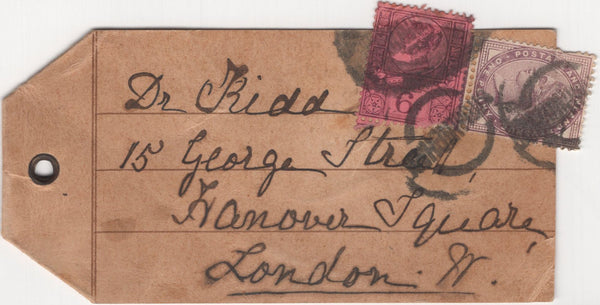 Dr Kidd
15 George Street,
Hanover Square,
London. W.
6